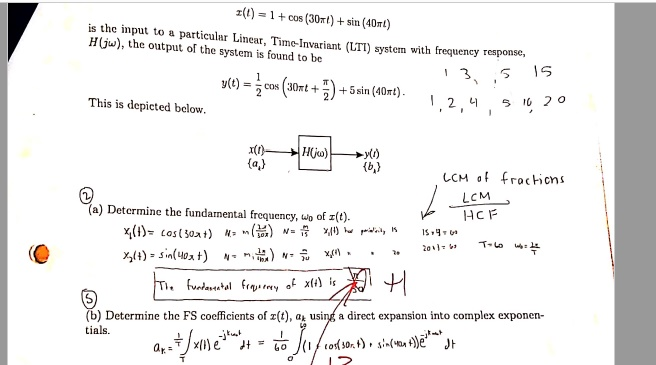 x(t) = 1 + cos (30πt) + sin (40πt)
is the input to a particular Linear, Time-Invariant (LTI) system with frequency response,
H(jω), the output of the system is found to be
1 3, 5 15
y(t) = 1/2 cos (30πt + π/2) + 5 sin (40πt).
1, 2, 4, 5 10, 20
This is depicted below.
x(t) H(jω) y(t)
{a_k} {b_k}
LCM of fractions
LCM
HCF
2
(a) Determine the fundamental frequency, ω0 of x(t).
x₁(t) = cos(30πt) N = m(2π/30π) N = m/15 x₁(t) has periodicity 15
15×4 = 60
x₂(t) = sin(40πt) N = m(2π/40π) N = m/20 x₂(t) " " 20
20×3 = 60 T=60 ω0 = 2π/T
The fundamental frequency of x(t) is π/30
+1
5
(b) Determine the FS coefficients of x(t), a_k using a direct expansion into complex exponen-
tials.
a_k = 1/T ∫ x(t) e^-jkω0t dt = 1/60 ∫ (1 + cos(30πt) + sin(40πt)) e^-jkω0t dt